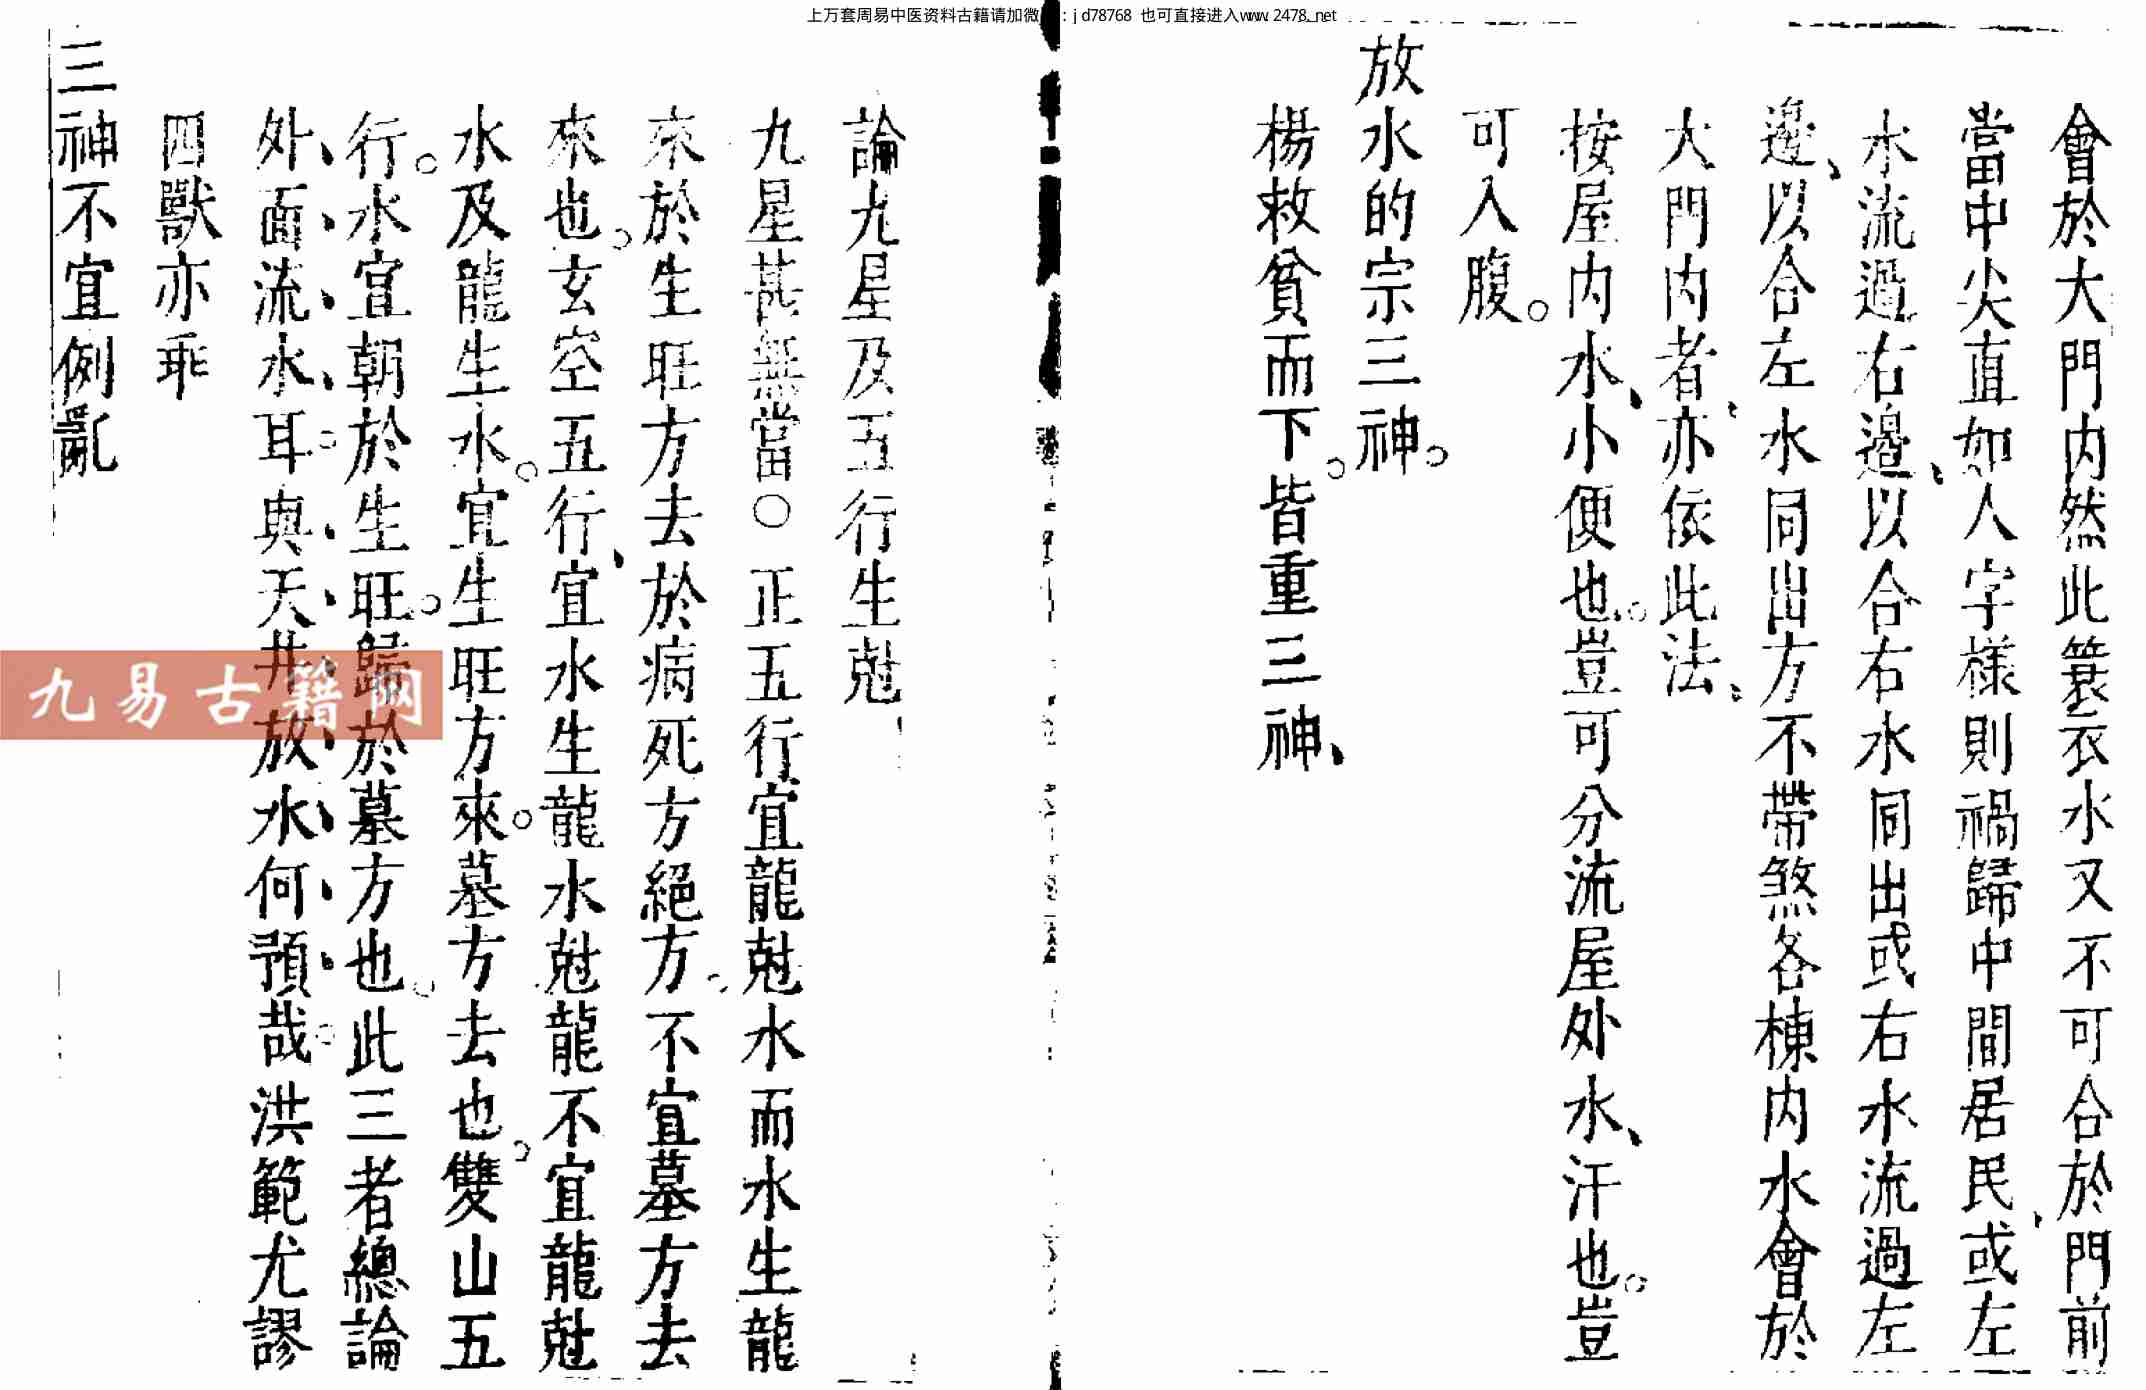 上万套周易中医资料古籍请加微:jd78768 也可直接进入www.2478.net
會於大門内然此簑衣水又不可合於門前
當中尖直如人字樣則禍歸中間居民或左
水流過右邊、以合右水同出或右水流過左
邊、以合左水同出方不帶煞各棟内水會於
大門内者、亦依此法、
按屋内水、小便也。豈可分流屋外水、汗也。豈
可入腹。
放水的宗三神。
楊救貧而下。皆重三神、
論九星及五行生尅
九星甚無當○正五行宜龍尅水而水生龍
來於生旺方去於病死方絕方。不宜墓方去
來也。玄空五行、宜水生龍水尅龍不宜龍尅
水及龍生水。宜生旺方來。墓方去也。雙山五
行。水宜朝於生旺。歸於墓方也。此三者總論
外、面、流、水、耳。與、天、井、放、水、何、預、哉。洪範尤謬
四獸亦乖
三神不宜例亂
九易古籍网